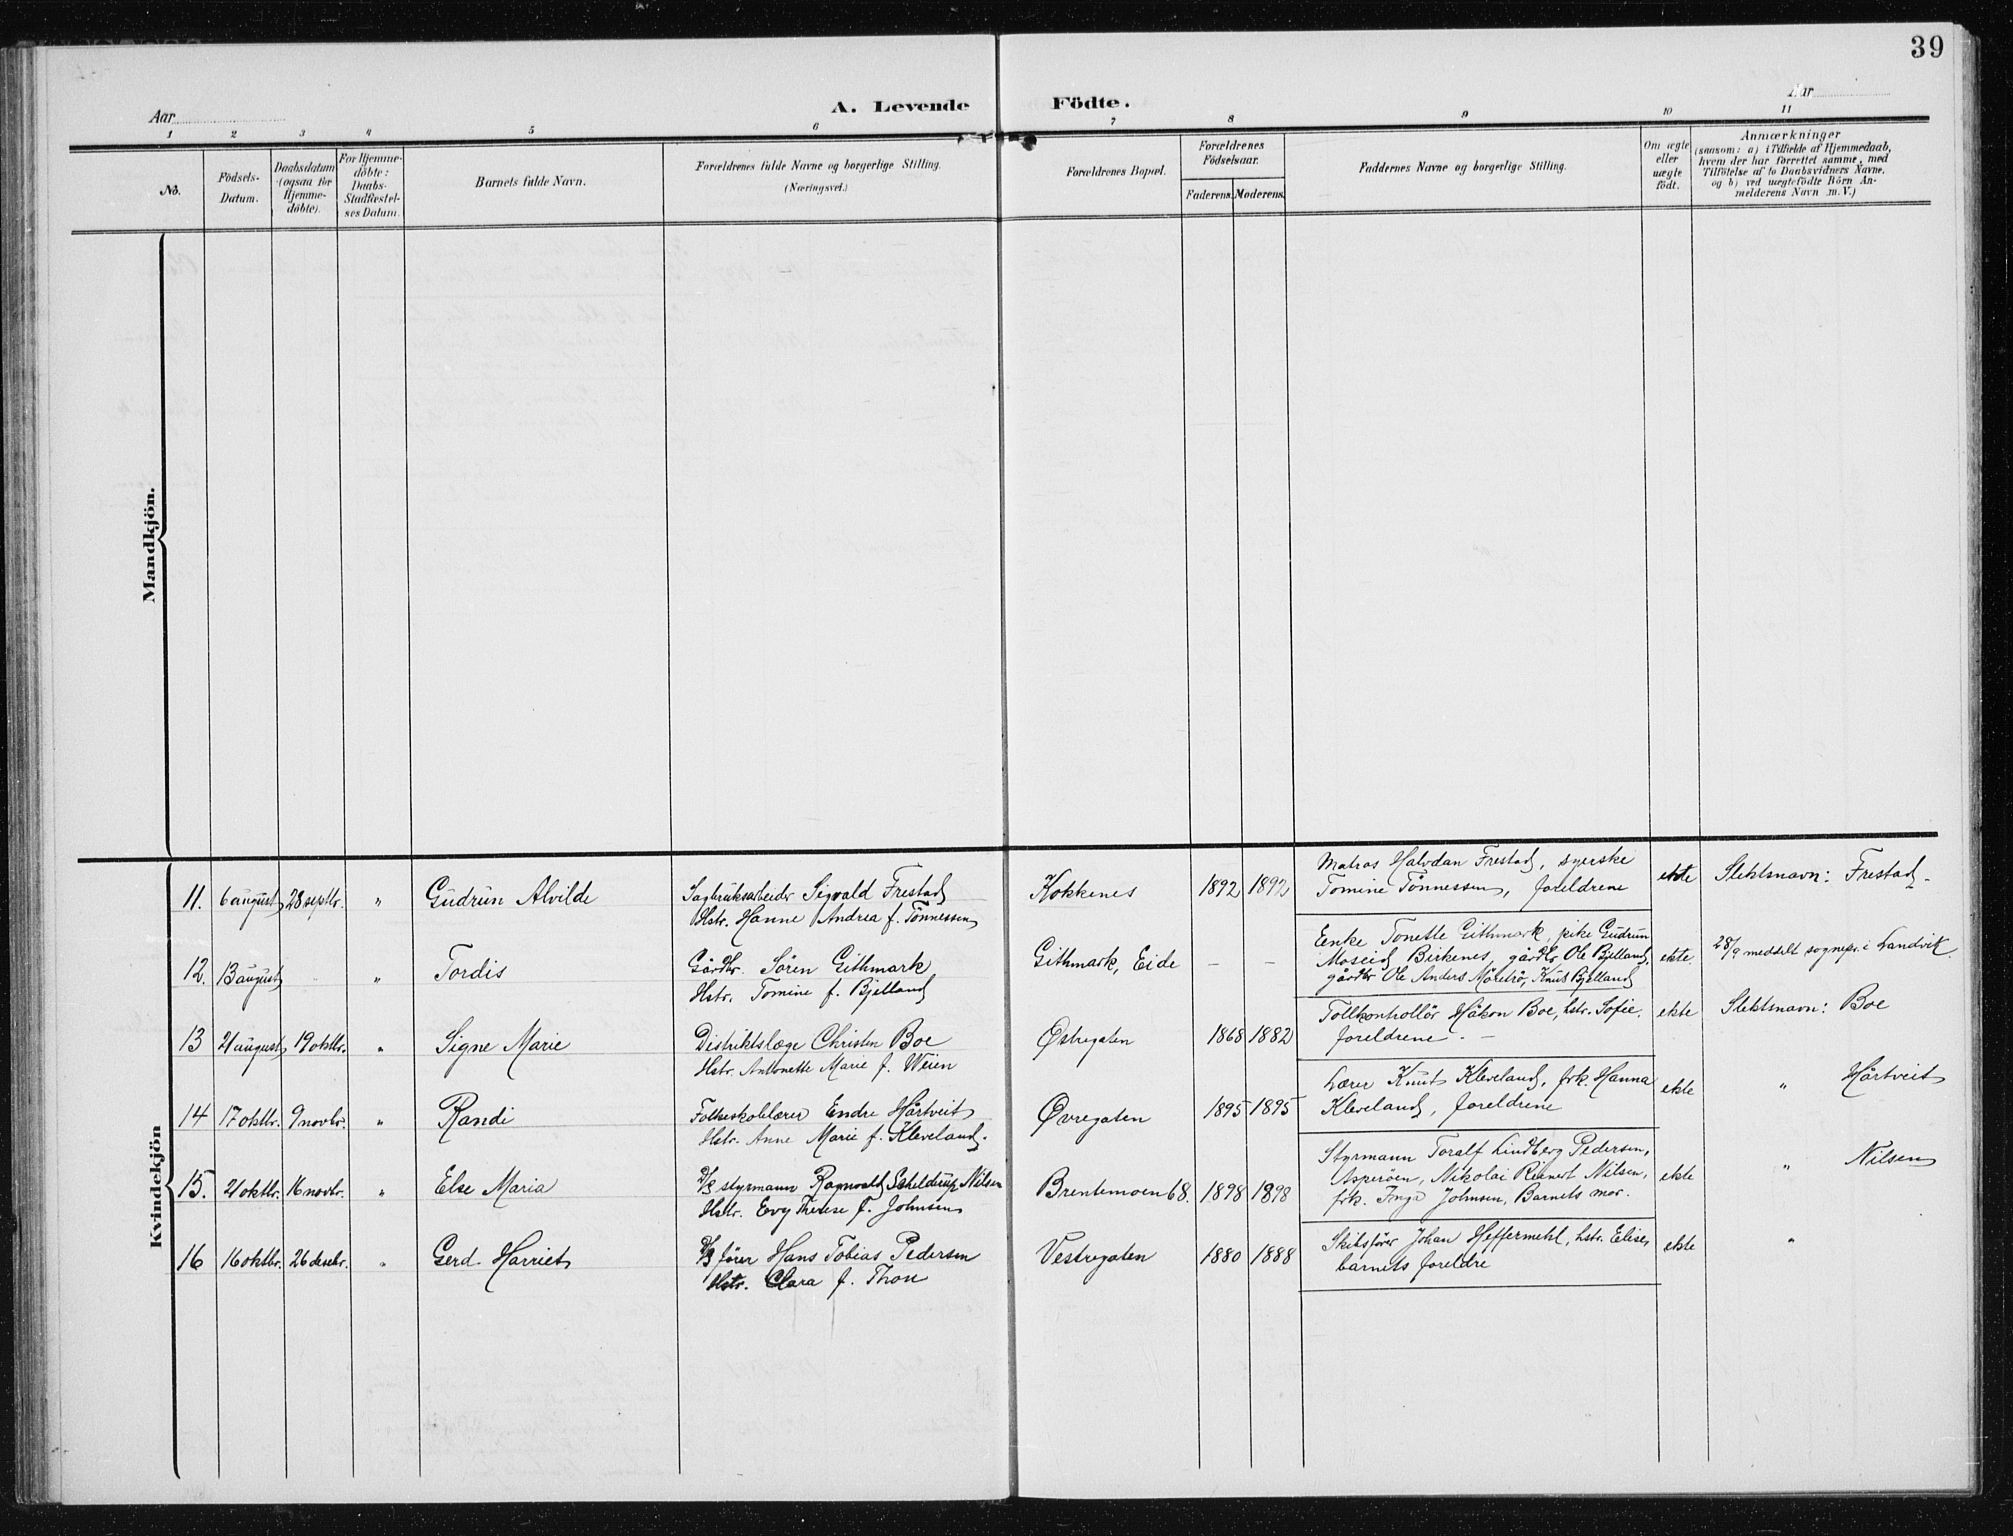 39
Aar
A. Levende Födte.
Aar
1 2 3 4 5 6 7 8 9 10 11
No.
Födsels-
Datum.
Daabsdatum
(ogsaa for
Hjemme-
döbte).
For Hjemme-
döbte:
Daabs-
Stadfæstel-
ses Datum.
Barnets fulde Navn.
Forældrenes fulde Navne og borgerlige Stilling.
(Næringsvei.)
Forældrenes Bopæl.
Forældrenes
Födselsaar.
Faderens. Moderens.
Faddernes Navne og borgerlige Stilling.
Om ægte
eller
uægte
födt.
Anmærkninger
(saasom: a) i Tilfælde af Hjemmedaab,
hvem der har forrettet samme, med
Tilföielse af to Daabsvidners Navne,
og b) ved uægtefödte Börn An-
melderens Navn m. V.)
Mandkjön.
Kvindekjön
11. 6 august 28 septbr. " Gudrun Alvilde
Sagbruksarbeider Sigvald Frestad
Hstr. Hanne Andrea f. Tönnessen
Kokkenes 1892 1892
Matros Halvdan Frestad, syerske
Tomine Tönnessen, foreldrene
ekte Slektsnavn: Frestad
12. 13 august " Tordis
Gårdbr. Sören Githmark
Hstr. Tomine f. Bjelland
Githmark, Eide - -
Enke Tonette Githmark, pike Gudrun
Moseid Birkenes, gårdbr Ole Bjelland,
gårdbr Ole Anders Möretrö, Knut Bjelland
ekte. 28/9 meddelt sognepr. i Landvik.
13 21 august 19 oktbr. " Signe Marie
Distriktslæge Christen Boe
Hstr. Antonette Marie f. Weien
Østregaten 1868 1882
Tollkontrollör Håkon Boe, hstr. Sofie,
foreldrene. -
ekte Slektsnavn: Boe
14 17 oktbr. 9 novbr. " Randi
Folkeskolelærer Endre Hårtveit
Hstr. Anne Marie f. Kleveland.
Øvregaten 1895 1895
Lærer Knut Kleveland, frk. Hanna
Kleveland, foreldrene
ekte " Hårtveit
15. 21 oktbr. 16 novbr. " Else Maria
D/S styrmann Ragnvald Scheldrup Nilsen
Hstr. Evy Therese f. Johnsen
Brentemoen 68. 1898 1898
Styrmann Toralf Lindberg Pedersen,
Asperöen, Nikolai Reinert Nilsen,
frk. Inga Johnsen, Barnets mor.
ekte " Nilsen
16 16 oktbr. 26 desbr. " Gerd Harriet
D/S förer Hans Tobias Pedersen
Hstr. Clara f. Thon
Vestregaten 1880 1888
Skibsförer Johan Heffermehl, hstr. Elise,
barnets foreldre
ekte "